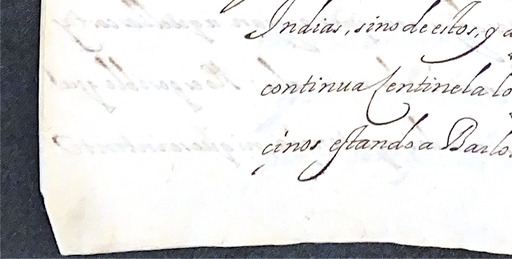 Indias, sino de estos, y a
continua Centinela lo
çinos estando a Barlo